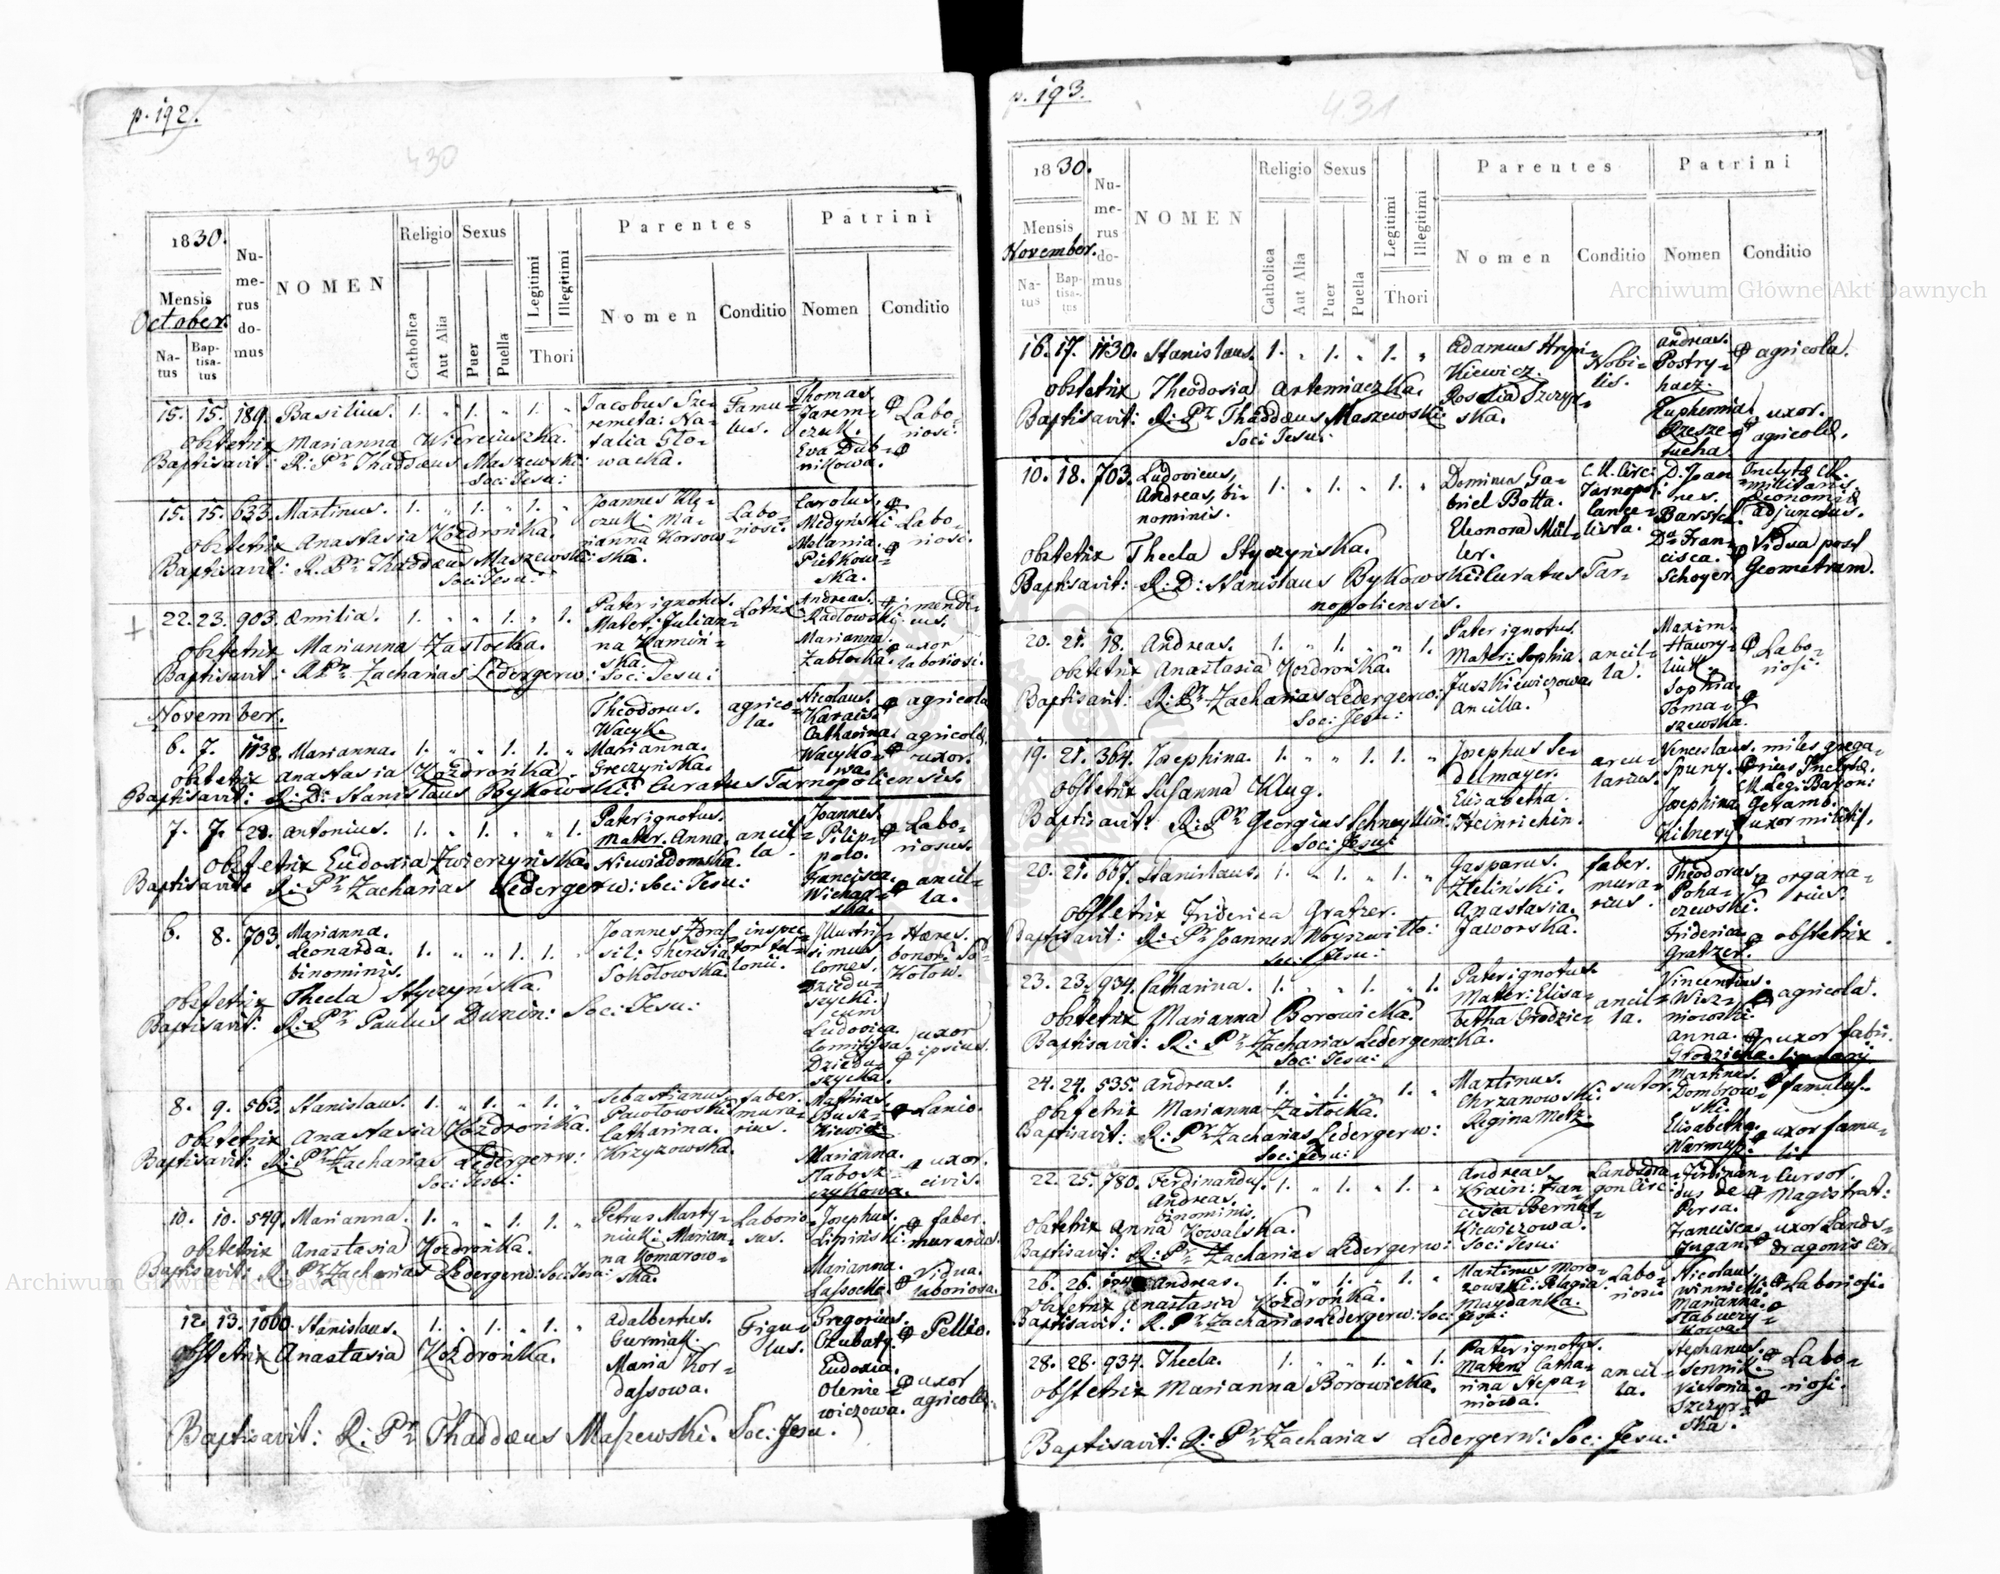 p. 192.
430
1830.
Mensis
October.
Na-
tus
Bap-
tisa-
tus
Nu-
me-
rus
do-
mus
NOMEN
Religio
Catholica
Aut Alia
Sexus
Puer
Puella
Legitimi
Illegitimi
Thori
Parentes
Nomen
Conditio
Patrini
Nomen
Conditio
15. 15. 189. Basilius. 1. „ 1. „ 1. „
Jacobus Sze-
remeta: Na-
talia Glo-
wacka.
Famu-
lus.
Thomas
Jarem-
czuk.
Eva Dub-
nikowa.
Labo-
riosi.
obstetrix Marianna Wierciuszka.
Baptisavit: R: Pr Thaddæus Maszewski:
Soc: Jesu:
15. 15. 633. Martinus. 1. „ 1. „ 1. „
Joannes
Ma-
rianna Korsow-
ska.
Labo-
riosi.
Carolus
Medyński
Melania
Pietkow-
ska.
Labo-
riosi.
obstetrix Anastasia Kozdrońka.
Baptisavit: R. Pr Thaddæus Maszewski:
Soc: Jesu:
22. 23. 903. Æmilia. 1. „ „ 1. „ 1.
Pater ignotus.
Mater: Julian-
na Kamiń-
ska.
Lotrix
Andreas
Radłowski
Marianna
Zabłocka.
mendi-
cus.
uxor
laboriosi.
obstetrix Marianna Zastocka.
Baptisavit: R. Pr Zacharias Ledergerw: Soc: Jesu:
November.
6. 7. 1138. Marianna. 1. „ „ 1. 1. „
Theodorus
Wacyk.
Marianna.
Greczyńska.
agrico-
la.
Nicolaus.
Karais.
Catharina.
Wacyko-
wa.
agricola
agricolæ
uxor.
obstetrix Anastasia Kozdrońka.
Baptisavit: R: D: Stanislaus Bykowski: Curatus Tarnopoliensis.
7. 7. 28. Antonius. 1. „ 1. „ „ 1.
Pater ignotus.
Mater. Anna
Niewiadomska.
ancil-
la.
Joannes
Pilip-
polo.
Francisca
Wichar-
ska.
Labo-
riosus.
ancil-
la.
obstetrix Eudoxia Zwierzyńska.
Baptisavit: R: Pr Zacharias Ledergerw: Soc: Jesu:
6. 8. 703. Marianna.
Leonarda.
binominis.
1. „ „ 1. 1. „
Joannes
Theresia
Sokołowska.
inspec-
tor te-
lonii.
Illustris-
simus
Comes.
Dziedu-
szycki.
cum
Ludovica
Comitissa
Dziedu-
szycka.
Hæres.
bonor: So-
kołow.
uxor
ipsius.
obstetrix Thecla Styczyńska.
Baptisavit: R: Pr Paulus Dunin: Soc: Jesu:
8. 9. 563. Stanislaus. 1. „ 1. „ 1. „
Sebastianus
Pawłowski
Catharina.
Krzyzowska.
faber.
mura-
rius.
Mathias.
Busz-
kiewicz
Marianna.
Lanio.
uxor.
civis.
obstetrix Anastasia Kozdrońka.
Baptisavit: R: Pr Zacharias Ledergerw:
Soc: Jesu:
10. 10. 549. Marianna. 1. „ „ 1. 1. „
Petrus Marty-
niuk: Marian-
na Komarow-
ska.
Laborio-
sus.
Josephus.
Lipiński.
Marianna.
Lassocka.
faber.
murarius.
Vidua.
laboriosa.
obstetrix Anastasia Kozdrońka.
Baptisavit: R: Pr Zacharias Ledergerw: Soc: Jesu:
12. 13. 1060. Stanislaus. 1. „ 1. „ 1. „
Adalbertus.
Gurniak.
Maria Kor-
dassowa.
Figu-
lus.
Gregorius.
Czubaty.
Eudoxia.
Olenie-
wiczowa.
Pellio.
uxor
agricolæ.
obstetrix Anastasia Kozdrońka.
Baptisavit: R: Pr Thaddæus Maszewski. Soc: Jesu.
p. 193.
431
1830.
Mensis
November.
Na-
tus
Bap-
tisa-
tus
Nu-
me-
rus
do-
mus
NOMEN
Religio
Catholica
Aut Alia
Sexus
Puer
Puella
Legitimi
Illegitimi
Thori
Parentes
Nomen
Conditio
Patrini
Nomen
Conditio
16. 17. 1130. Stanislaus. 1. „ 1. „ 1. „
Adamus Hrysi-
kiewicz.
Rosalia Szczyr-
ska.
Nobi-
lis.
Andreas.
Postry-
hacz.
Euphemia
Rzesze-
tucha
agricola.
uxor.
agricolæ.
obstetrix Theodosia Artemiaczka.
Baptisavit: R: Pr Thaddæus Maszewski:
Soc: Jesu:
10. 18. 703. Ludovicus,
Andreas, bi-
nominis.
1. „ 1. „ 1. „
Dominus Ga-
briel Botta.
Eleonora Mül-
ler.
C. R. Circ:
Tarnopol:
cance-
lista.
D. Joan-
nes.
Barstel.
Da Fran-
cisca.
Schoyer.
Inclytæ
militaris
œconomiæ
adjunctus.
Vidua post
Geometram.
obstetrix Thecla Styczyńska.
Baptisavit: R: D: Stanislaus Bykowski: Curatus Tar-
nopoliensis.
20. 21. 18. Andreas. 1. „ 1. „ „ 1.
Pater ignotus.
Mater: Sophia.
Juszkiewiczowa
ancilla.
ancil-
la.
Maxim.
Hawry-
luk.
Sophia.
Toma-
szewska.
Labo-
riosi.
obstetrix Anastasia Kozdrońka.
Baptisavit: R: Pr Zacharias Ledergerw:
Soc: Jesu:
19. 21. 364. Josephina. 1. „ „ 1. 1. „
Josephus Se-
delmayer.
Elisabetha.
Heinrichin.
arcu-
larius.
Venceslaus.
Spuny.
Josephina
Kilnery
miles grega-
rius Inclytæ.
Leg: Baron:
Geramb.
uxor militis.
obstetrix Susanna Klug.
Baptisavit: R: Pr Georgius
Soc: Jesu:
20. 21. 667. Stanislaus. 1. „ 1. „ 1. „
Gasparus.
Zieliński.
Anastasia.
Jaworska.
faber.
mura-
rius.
Theodorus
Poha-
czewski.
Friderica
Gratzer.
organa-
rius.
obstetrix.
obstetrix Friderica Gratzer.
Baptisavit: R: Pr Joannes Woyszwiłło:
Soc: Jesu:
23. 23. 934. Catharina. 1. „ „ 1. „ 1.
Pater ignotus.
Mater: Elisa-
betha Grodzic-
ka.
ancil-
la.
Vincentius.
Wisz-
niowski.
Anna.
Grodzicka.
agricola.
uxor fabri.
lignarii.
obstetrix Marianna Borowicka.
Baptisavit: R: Pr Zacharias Ledergerw:
Soc: Jesu:
24. 24. 535. Andreas. 1. „ 1. „ 1. „
Martinus.
Chrzanowski.
Regina Metz.
sutor.
Martinus.
Dombrow-
ski.
Elisabetha.
famulus.
uxor famu-
li.
obstetrix Marianna Zastocka.
Baptisavit: R: Pr Zacharias Ledergerw:
Soc: Jesu:
22. 25. 780. Ferdinandus.
Andreas.
binominis.
1. „ 1. „ 1. „
Andreas
Krain: Fran-
cisca Bernat-
kiewiczowa.
Landsdra-
gon Circ:
Ferdinan-
dus de
Persa.
Francisca
Jugan.
Cursor
Magistrat:
uxor Lands-
dragonis Circ:
obstetrix Anna Kowalska.
Baptisavit: R: Pr Zacharias Ledergerw: Soc: Jesu:
26. 26. Andreas. 1. „ 1. „ 1. „
Martinus Moro-
zowski: Pelagia
Muydanka.
Labo-
riosi.
Nicolaus.
Winnicki
Marianna
Laboriosi.
obstetrix Anastasia Kozdrońka.
Baptisavit: R. Pr Zacharias Ledergerw: Soc: Jesu:
28. 28. 934. Thecla. 1. „ „ 1. „ 1.
Pater ignotus.
Mater: Catha-
rina Stepa-
niowa.
ancil-
la.
Stephanus
Sennik.
Victoria.
Szczyr-
ska.
Labo-
riosi.
obstetrix Marianna Borowicka.
Baptisavit: R: Pr Zacharias Ledergerw: Soc: Jesu:
Archiwum Główne Akt Dawnych
Archiwum Główne Akt Dawnych